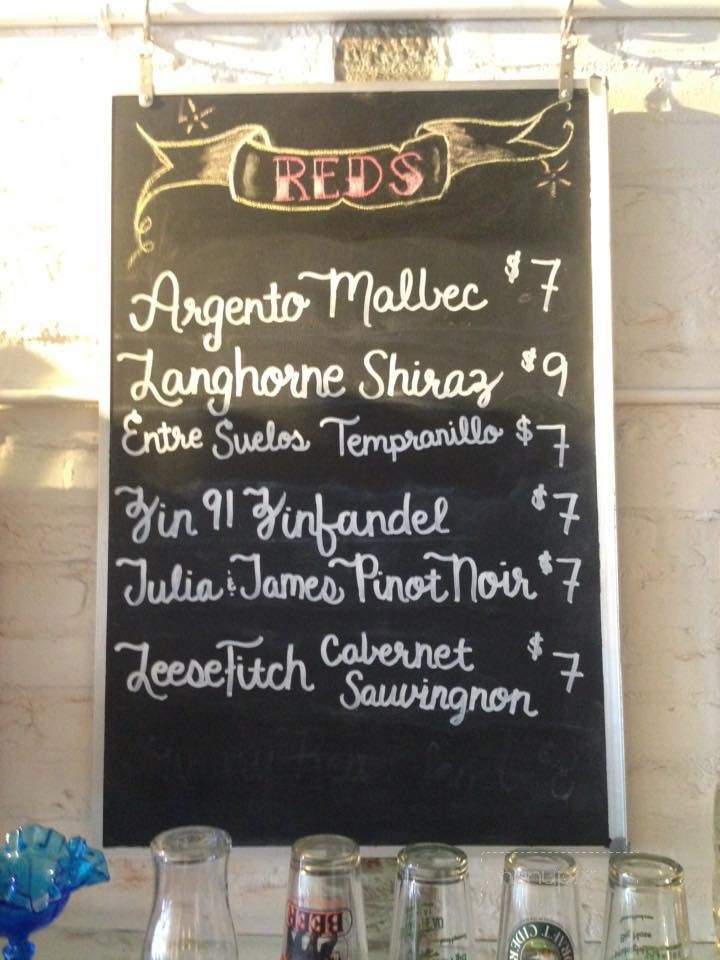 REDS
Argento Malbec $7
Langhorne Shiraz $9
Entre Suelos Tempranillo $7
Zin 91 Zinfandel $7
Julia & James Pinot Noir $7
Leese Fitch Cabernet Sauvingnon $7
BEER
CIDER